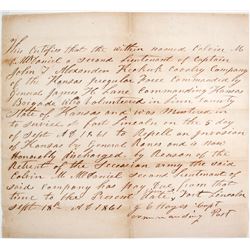 This Certifies that the within named Calvin M
McDaniel a second Lieutenant of Captain
John F. Alexanders Keokuk Cavalry Company
of the Kansas Irregular Force Commanded by
General James H. Lane Commanding Kansas
Brigade who volunteered in Linn County
State of Kansas and was Mustered in
to service at Fort Lincoln on the 5
day of Sept AD 1861 to Repell an Invasion
of Kansas by General Ranes and is now
Honorably discharged by Reason of the
Retreat of the Secession army the said
Calvin M. McDaniel second Lieutenant of
said Company has Pay due from that
time to the Present date Fort Lincoln
Sept 18th AD 1861 Capt
Commanding Post